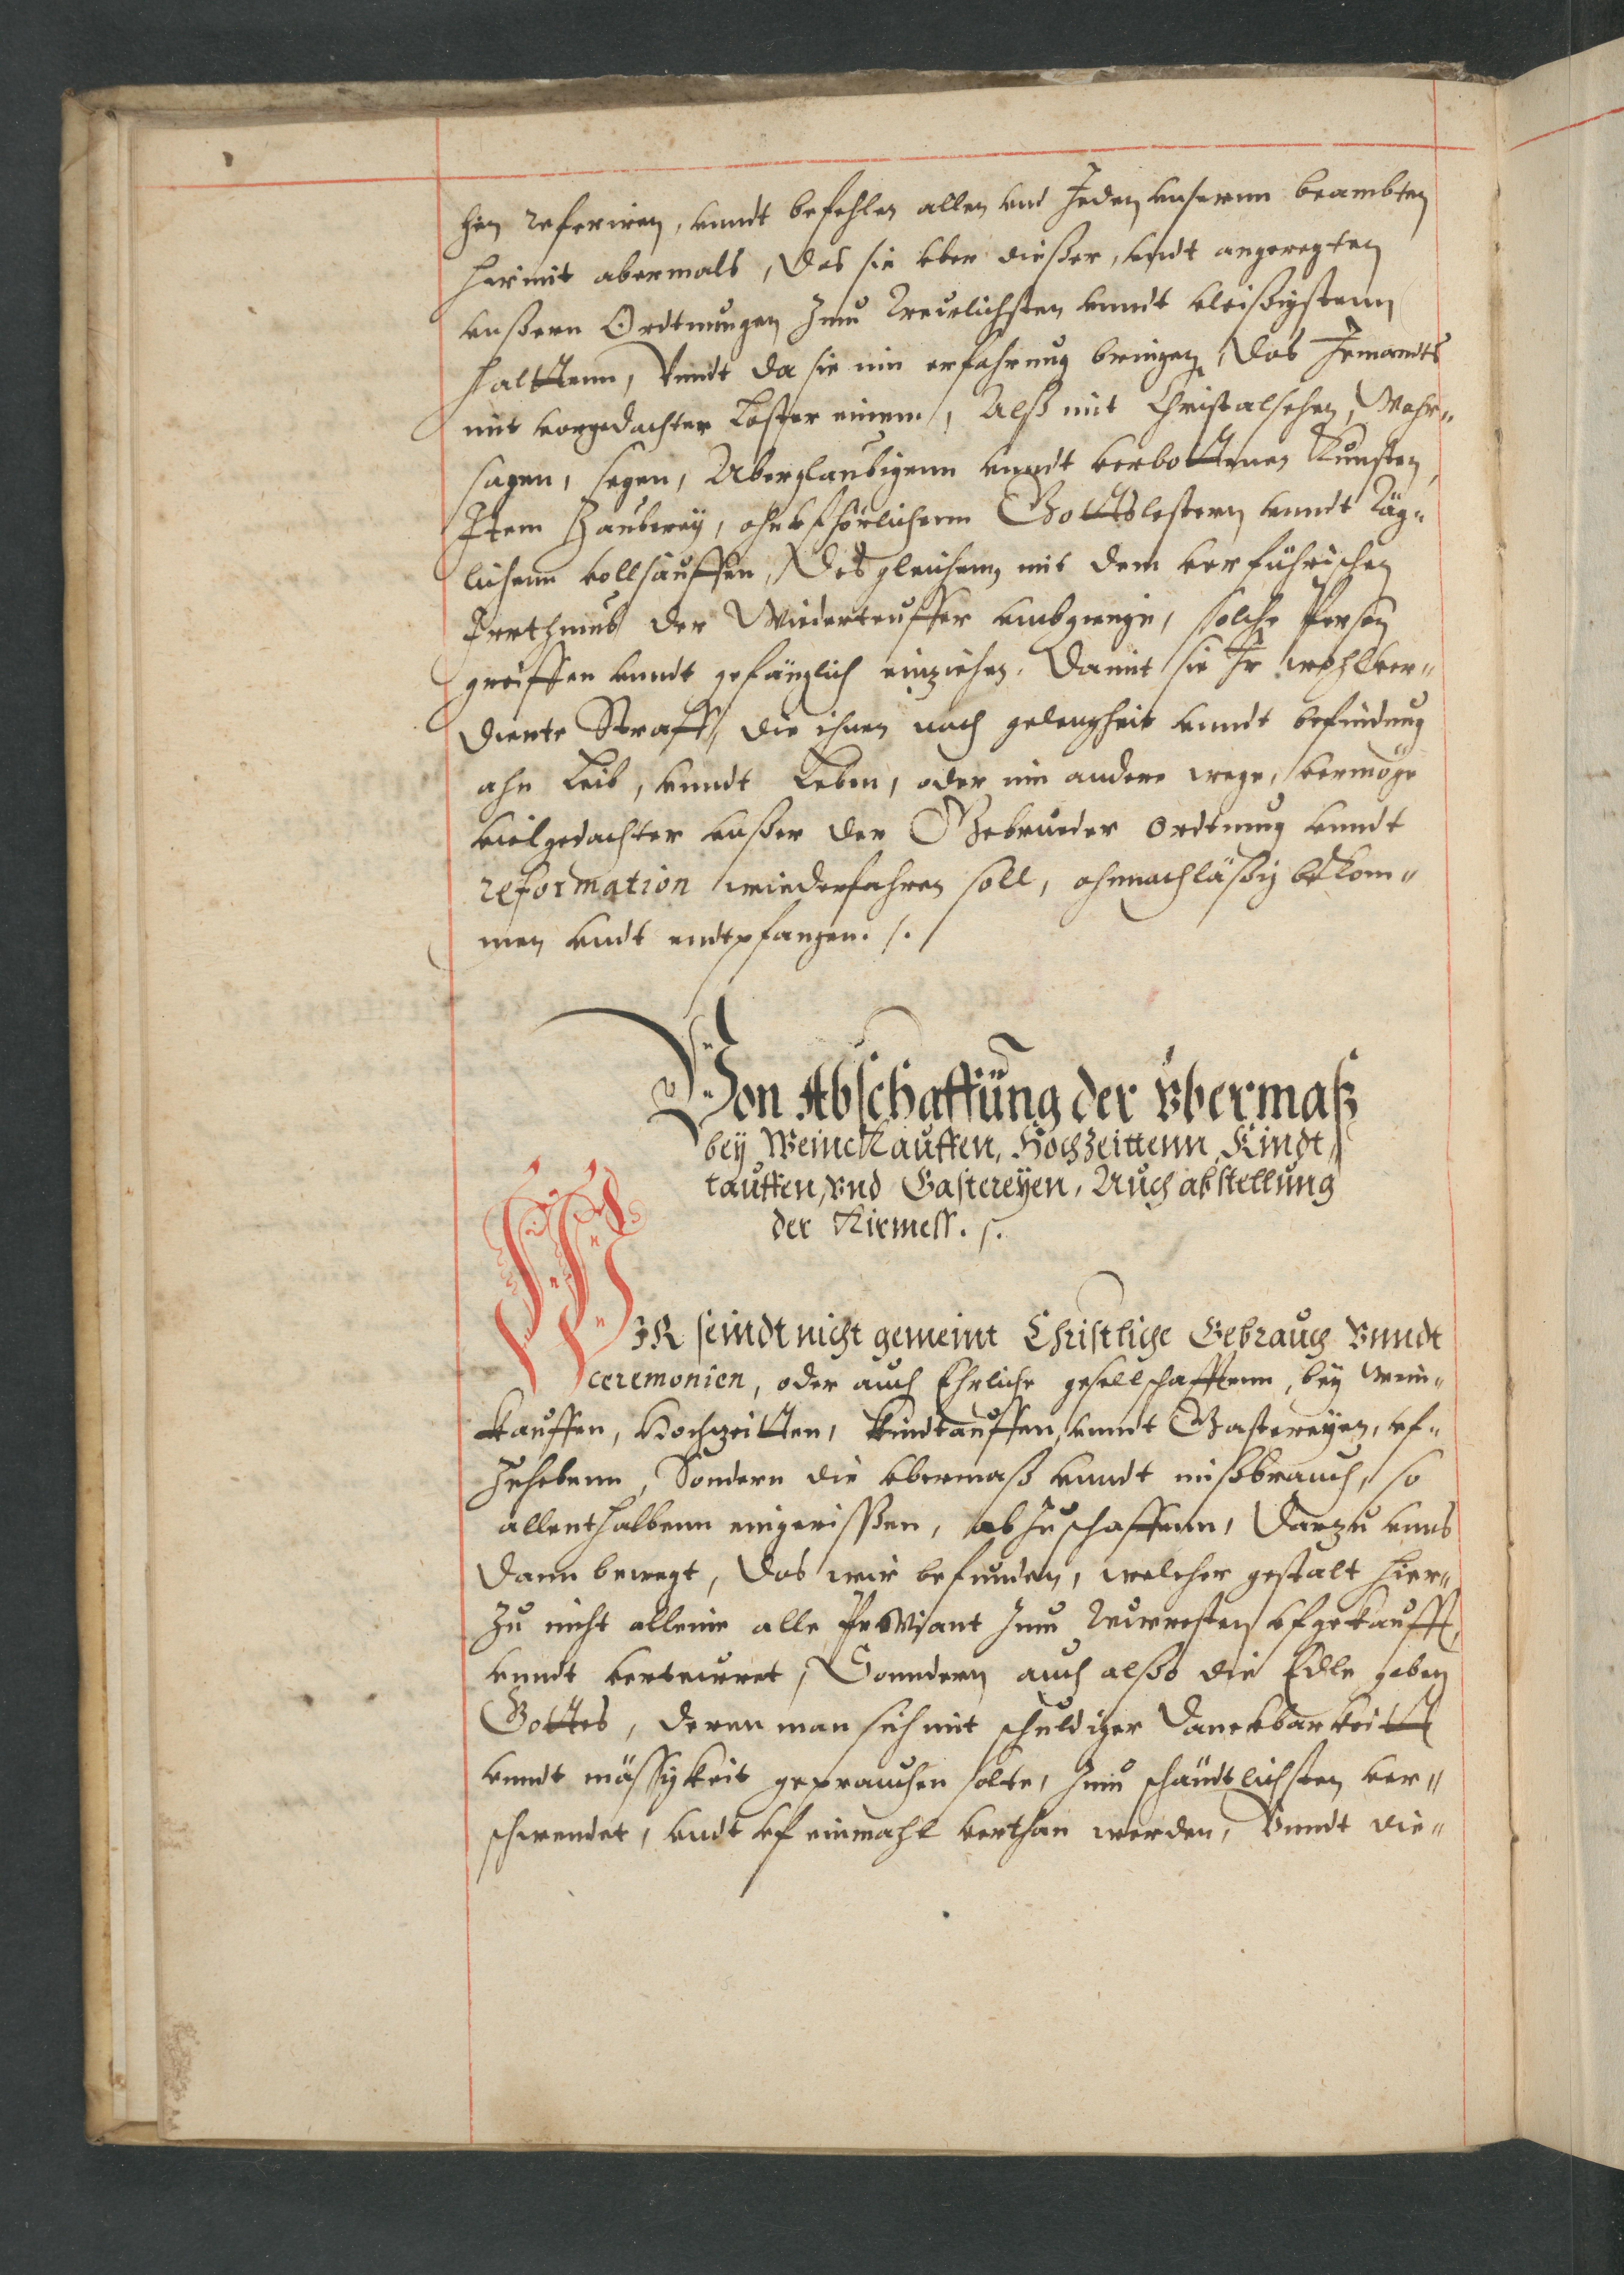 hin referiren, vnndt befehlen allen vnd Jeden vnsernn beambten
hiermit abermals, Das sie vber dießer, vndt angeregten
vnßern Ordtnungen Zum Treulichsten vnndt vleißigstenn
halttenn, Vnndt da sie inn erfahrung bringen, das Jemandts
mit vorgedachter Laster einem, Alß mit Christalsehen, Wahr„
sagen, segen, Aberglaubigenn vnndt verbottenen Kunsten,
Item Zauberey, ohnufhörlichenn Gottslestern vnndt Täg„
lichenn vollsauffen, Desgleichenn mit dem verführischen
Irrthumb der Wiederteuffer vmbgienge, solche Person
greiffen vnndt gefänglich einziehen. Damit sie Ihr wohlver„
diente Straff, die ihnen nach gelengheit vnndt befindung
ahn Leib, vnndt Leben, oder inn andere wege, vermöge
vielgedachter vnßer der Gebrueder Ordtnung vnndt
reformation wiederfahren soll, ohnnachläßig bekom„
men vndt endtpfangen. /.
Von Abschaffung der Vbermaß
bey Weinckauffen, Hochzeittenn, Kindt„
tauffen, vnd Gastereyen, Auch abstellung
der Kirmess. /.
WIR seindt nicht gemeint Christliche Gebrauch Vnndt
ceremonien, oder auch Ehrliche gesellschafftenn, bey Wein„
kauffen, Hochzeitten, Kindtauffen, vnndt Gastereyen, vf„
Zuhebenn, Sondern die vbermaß vnndt mißbrauch, so
allenthalbenn eingerißßen, abZuschaffenn, Darzu vnns
dann bewegt, Das wir befunden, welcher gestalt hier„
Zu nicht alleine alle Proviant Zum Teurresten vfgekaufft,
vnndt verteurret, Sonndern auch alßo die Edle gaben
Gottes, deren man sich mit schuldiger Danckbarkeitt
vnndt mässigkeit geprauchen solte, Zum schändtlichsten ver„
schwendet, vndt vf einmahl verthan werden, Vnndt die„